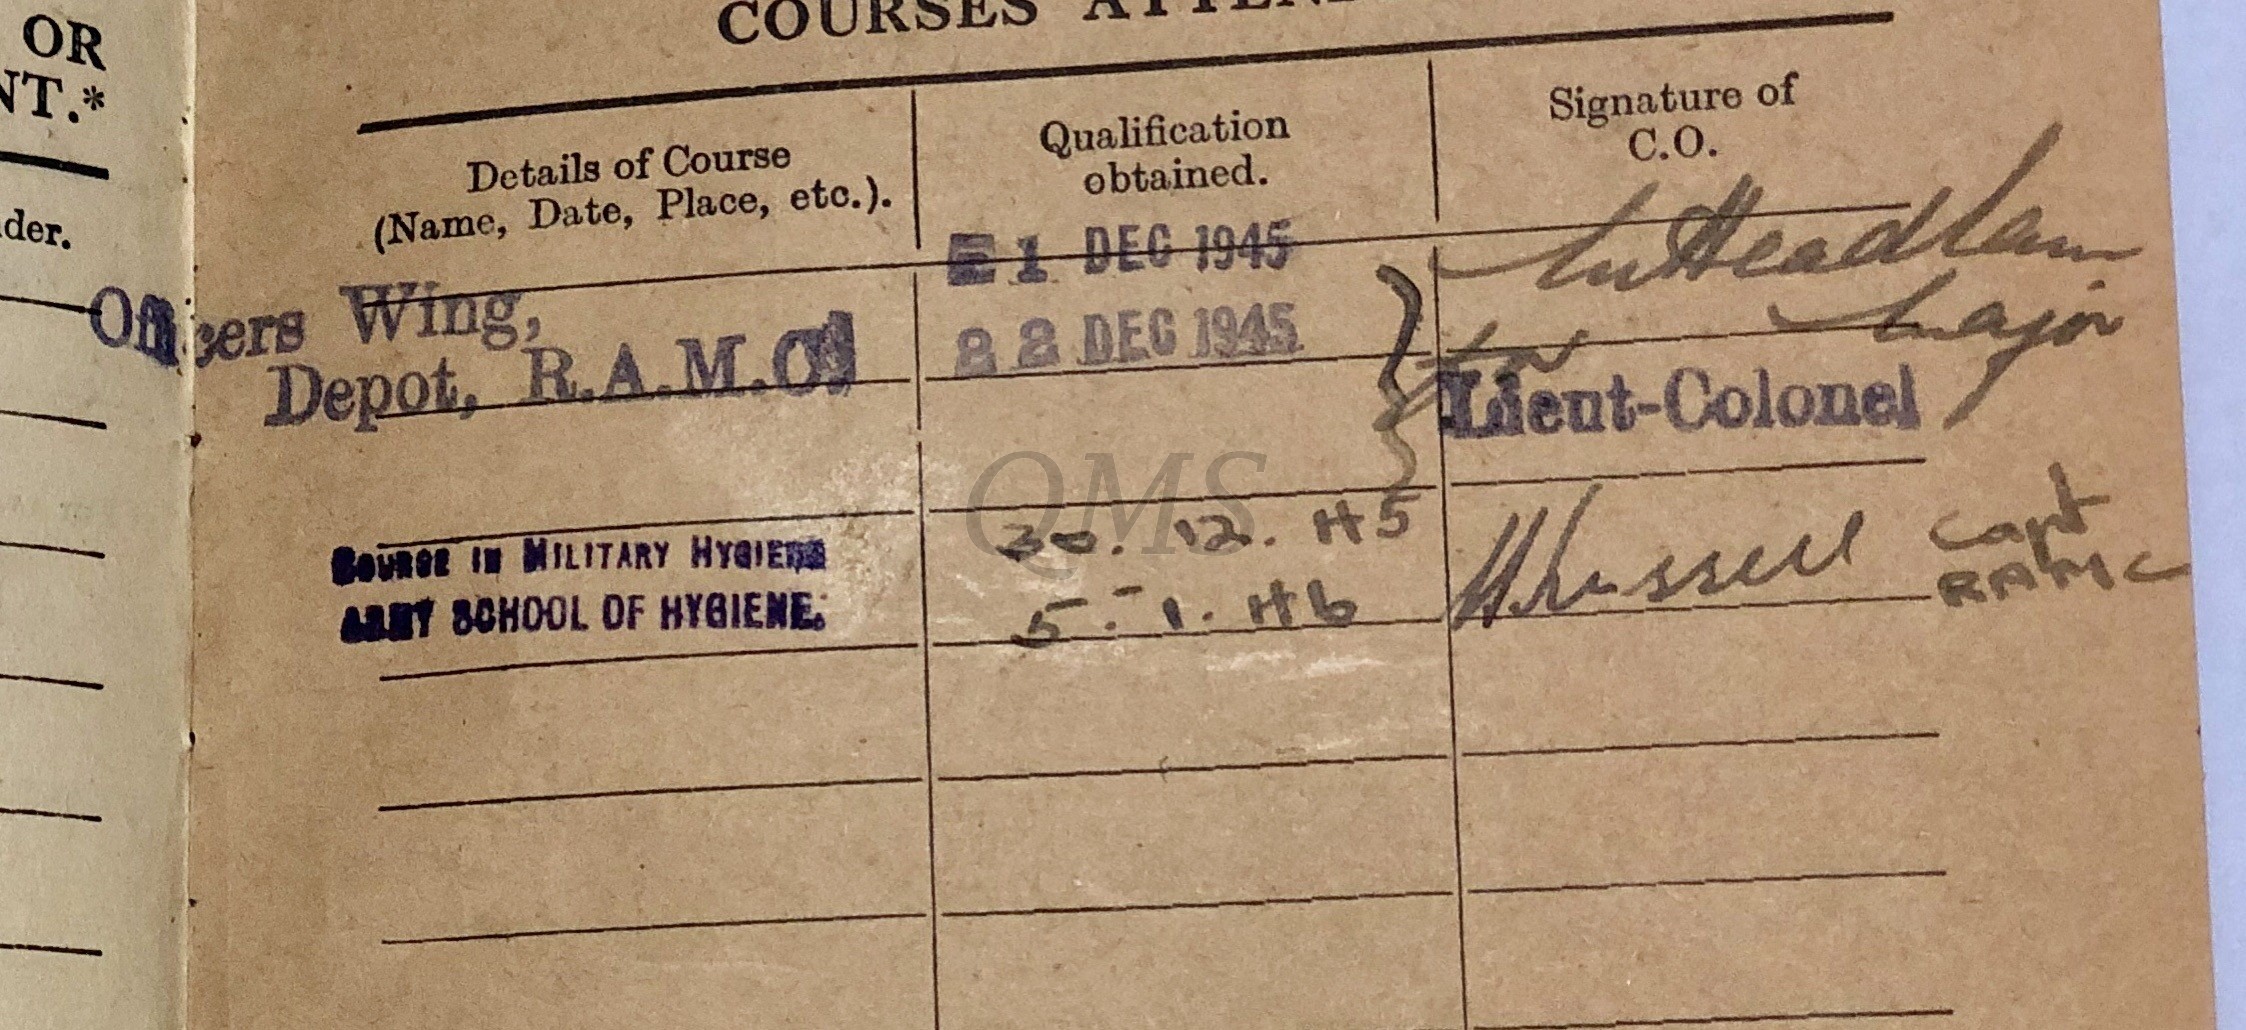 OR
NT.*
der.
COURSES ATTEN
Details of Course
(Name, Date, Place, etc.).
Qualification
obtained.
Signature of
C.O.
Officers Wing,
Depot, R.A.M.C.
1 DEC 1945
22 DEC 1945
Headlam
Major
for
Lieut-Colonel
QMS
COURSE IN MILITARY HYGIENE
ARMY SCHOOL OF HYGIENE.
30. 12. 45
5. 1. 46
H Russell
Capt
RAMC